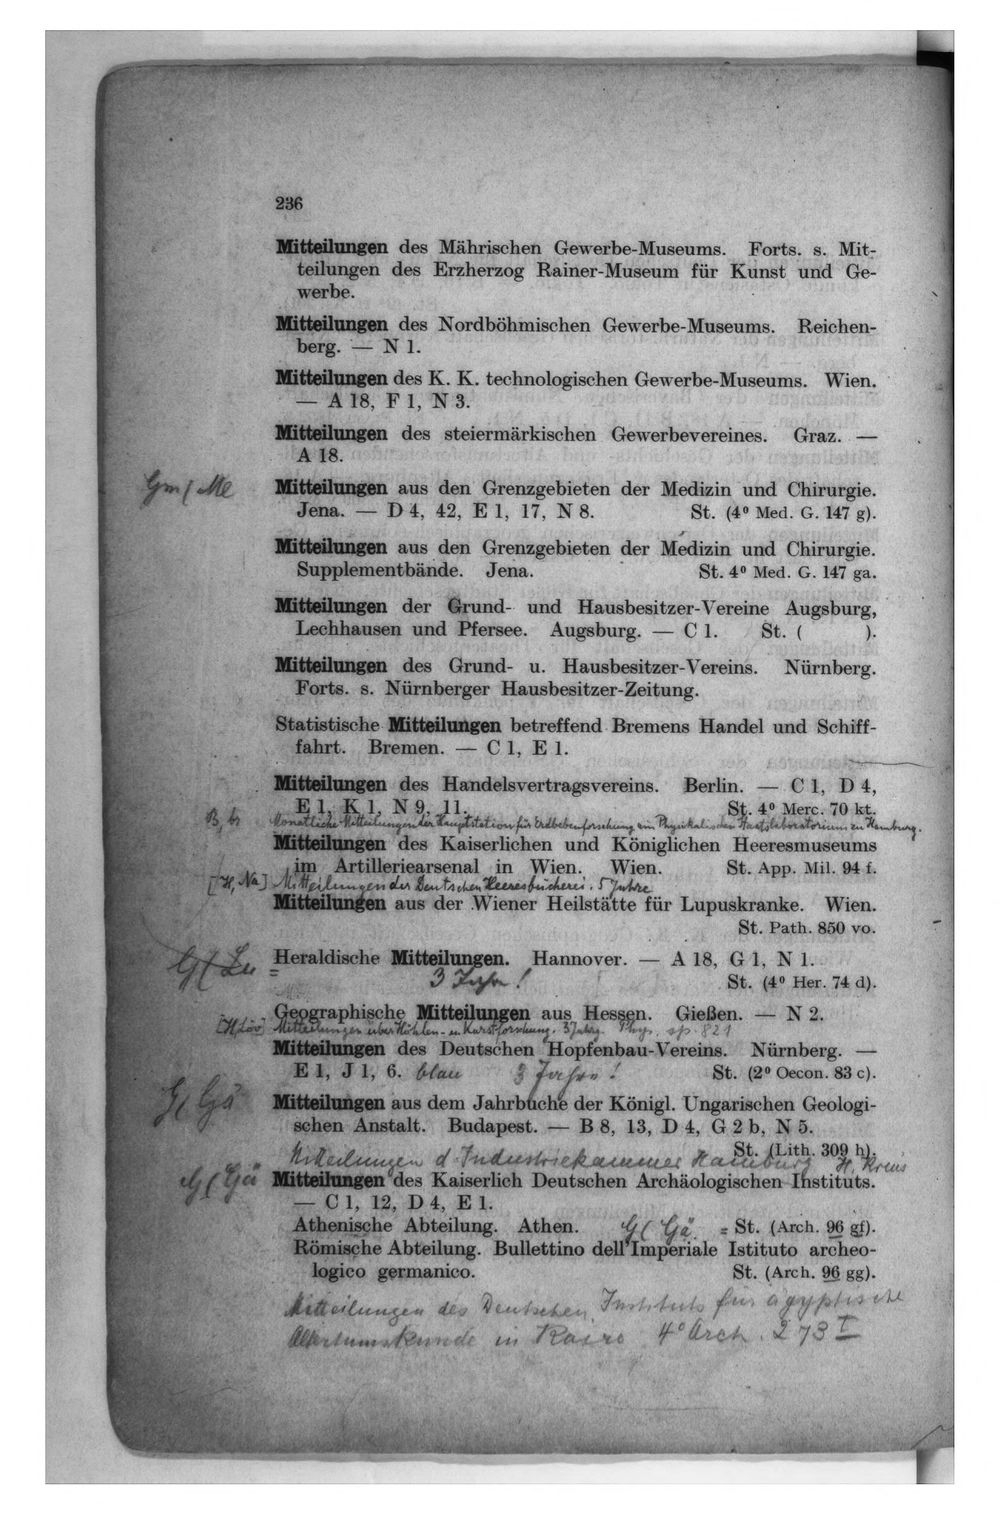 236
Mitteilungen des Mährischen Gewerbe-Museums. Forts. s. Mit-
teilungen des Erzherzog Rainer-Museum für Kunst und Ge-
werbe.
Mitteilungen des Nordböhmischen Gewerbe-Museums. Reichen-
berg. — N 1.
Mitteilungen des K. K. technologischen Gewerbe-Museums. Wien.
— A 18, F 1, N 3.
Mitteilungen des steiermärkischen Gewerbevereines. Graz. —
A 18.
Gm/ Me Mitteilungen aus den Grenzgebieten der Medizin und Chirurgie.
Jena. — D 4, 42, E 1, 17, N 8. St. (4⁰ Med. G. 147 g).
Mitteilungen aus den Grenzgebieten der Medizin und Chirurgie.
Supplementbände. Jena. St. 4⁰ Med. G. 147 ga.
Mitteilungen der Grund- und Hausbesitzer-Vereine Augsburg,
Lechhausen und Pfersee. Augsburg. — C 1. St. ( ).
Mitteilungen des Grund- u. Hausbesitzer-Vereins. Nürnberg.
Forts. s. Nürnberger Hausbesitzer-Zeitung.
Statistische Mitteilungen betreffend Bremens Handel und Schiff-
fahrt. Bremen. — C 1, E 1.
Mitteilungen des Handelsvertragsvereins. Berlin. — C 1, D 4,
E 1, K 1, N 9, 11. St. 4⁰ Merc. 70 kt.
Monatliche Mitteilungen der Hauptstation für Erdbebenforschung am Physikalischen Staatslaboratorium zu Hamburg.
Mitteilungen des Kaiserlichen und Königlichen Heeresmuseums
im Artilleriearsenal in Wien. Wien. St. App. Mil. 94 f.
[H, Na] Mitteilungen der Deutschen Heeresbücherei. 5 Jahre
Mitteilungen aus der Wiener Heilstätte für Lupuskranke. Wien.
St. Path. 850 vo.
Heraldische Mitteilungen. Hannover. — A 18, G 1, N 1.
3 Jahre! St. (4⁰ Her. 74 d).
Geographische Mitteilungen aus Hessen. Gießen. — N 2.
Mitteilungen über Höhlen- u. Karstforschung. 3 Jahrg. Phys. sp. 821
Mitteilungen des Deutschen Hopfenbau-Vereins. Nürnberg. —
E 1, J 1, 6. blau 3 Jahre! St. (2⁰ Oecon. 83 c).
G/ Gä Mitteilungen aus dem Jahrbuche der Königl. Ungarischen Geologi-
schen Anstalt. Budapest. — B 8, 13, D 4, G 2 b, N 5.
St. (Lith. 309 h).
Mitteilungen d Industriekammer Hamburg
G/ Gä Mitteilungen des Kaiserlich Deutschen Archäologischen Instituts.
— C 1, 12, D 4, E 1.
Athenische Abteilung. Athen. G/ Gä = St. (Arch. 96 gf).
Römische Abteilung. Bullettino dell'Imperiale Istituto archeo-
logico germanico. St. (Arch. 96 gg).
Mitteilungen des Deutschen Instituts für ägyptische
Altertumskunde in Kairo 4⁰ Arch. 273 I